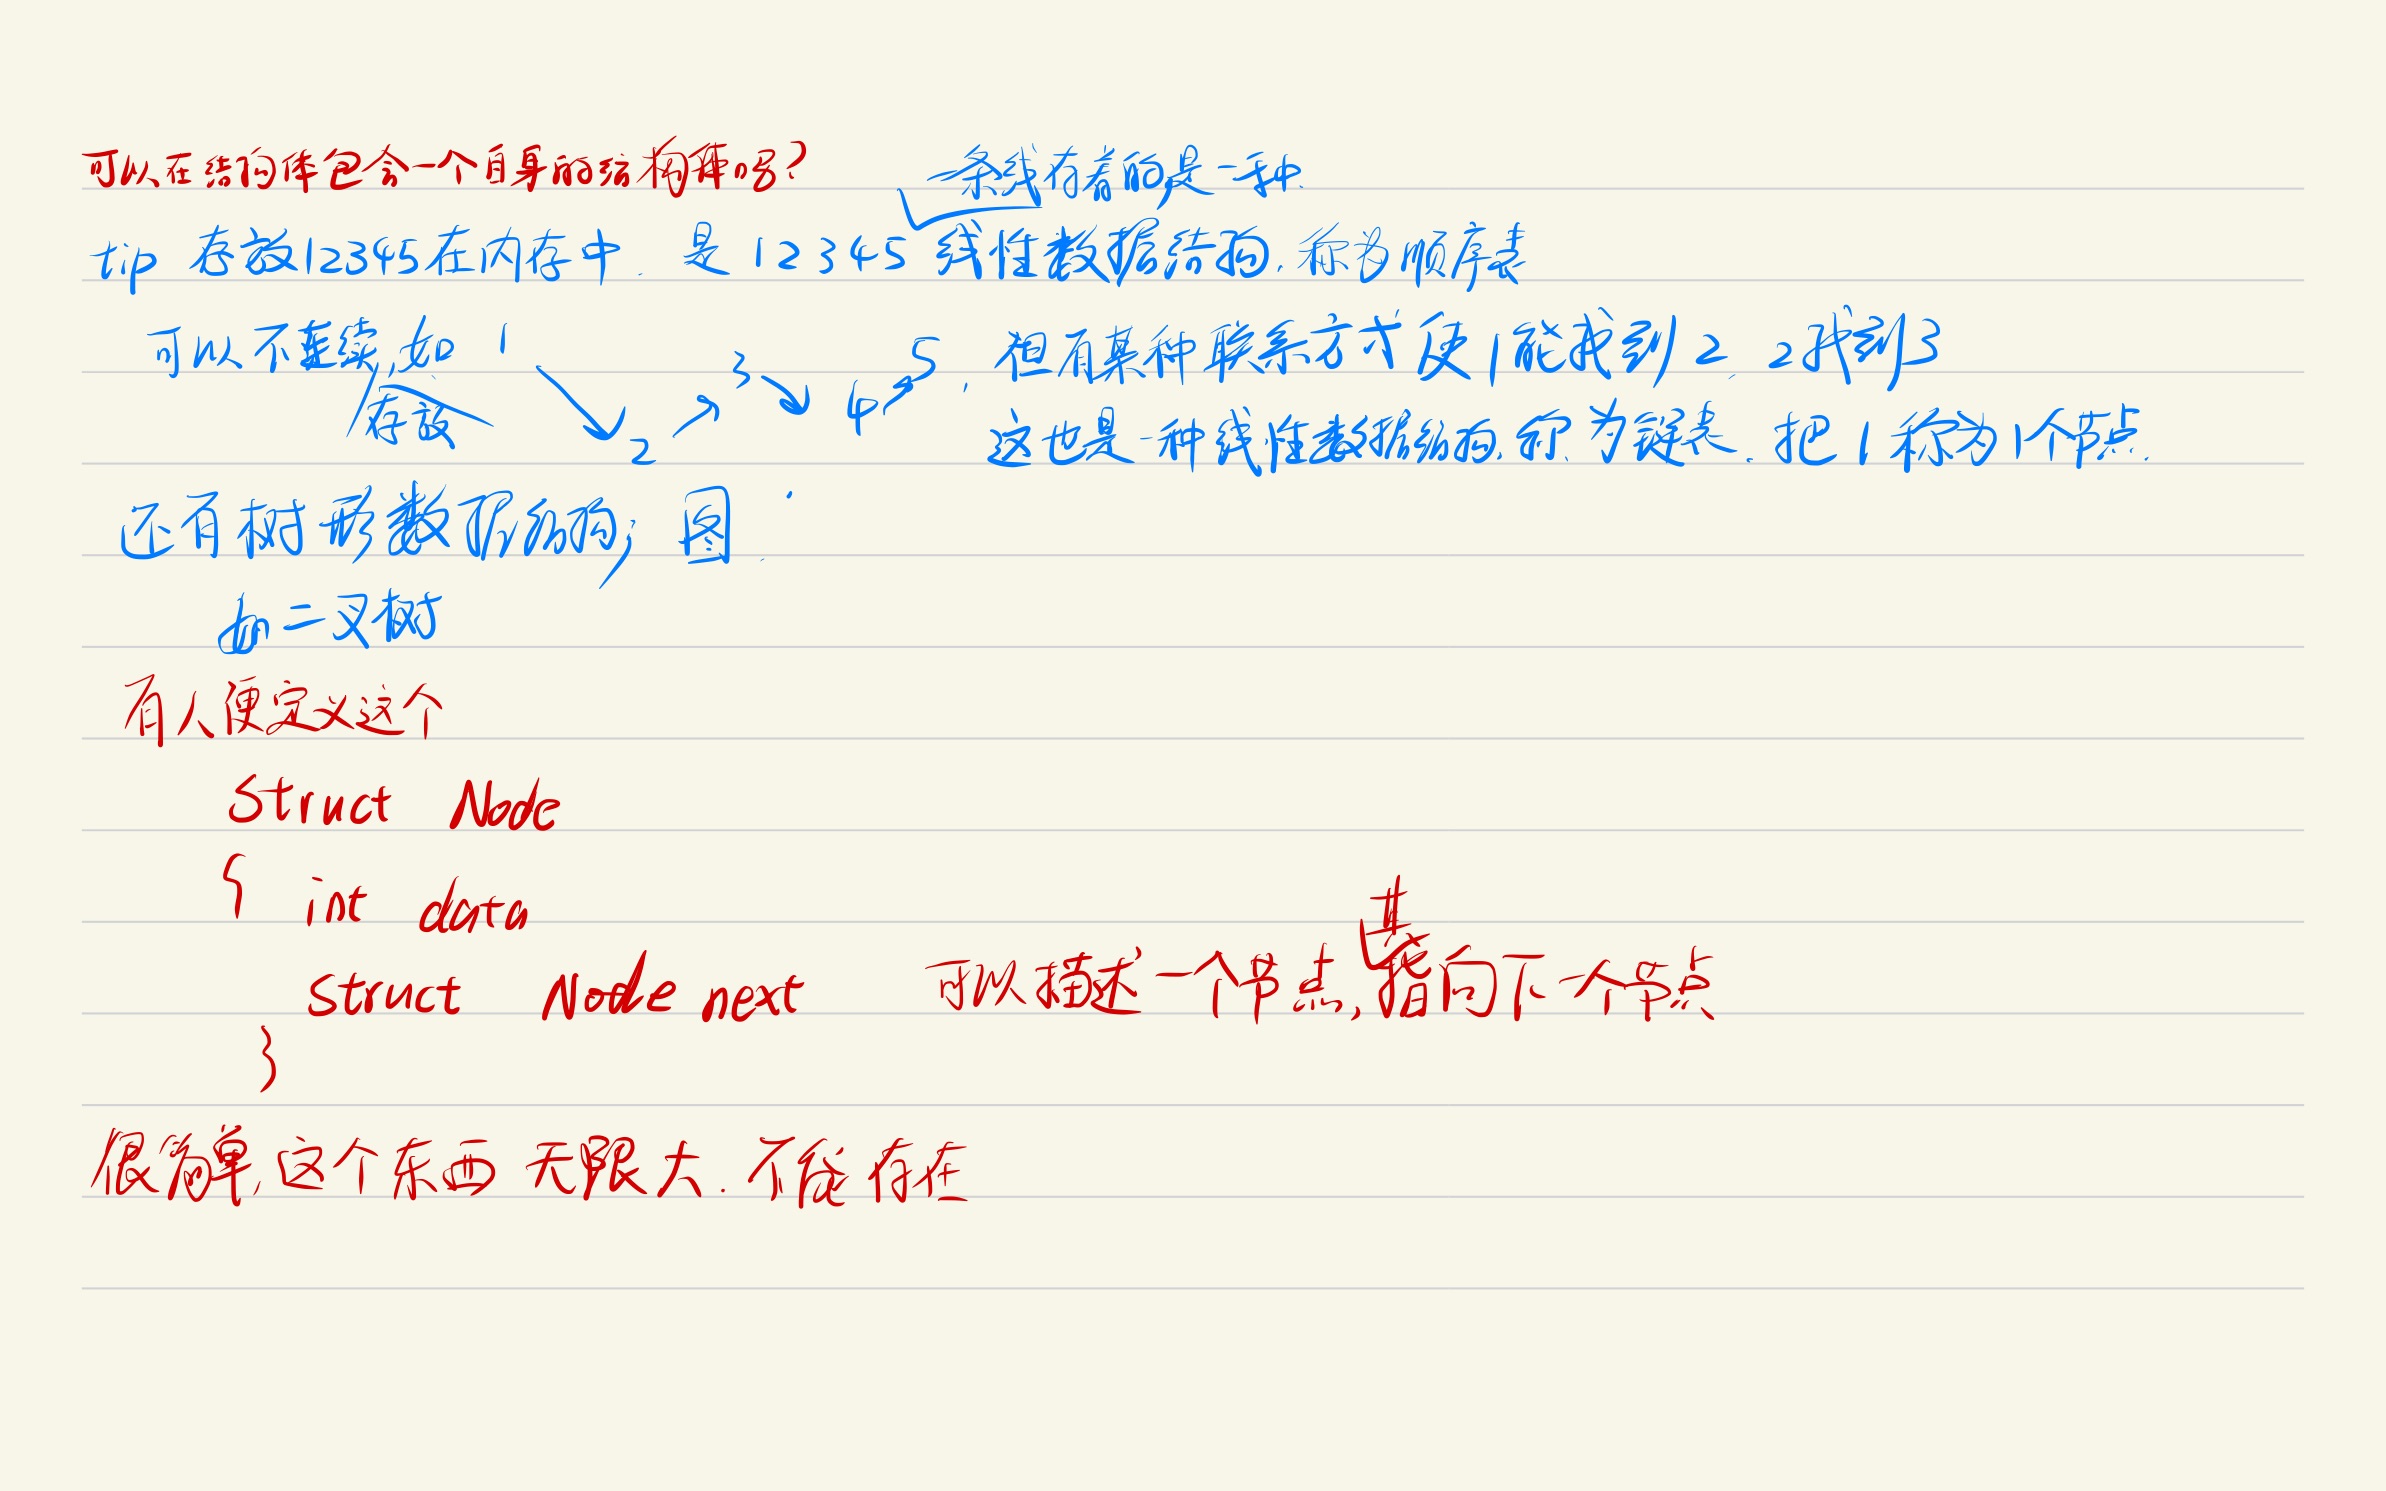 可以在结构体包含一个自身的结构体吗?
一条线有着的是一种.
tip 存放12345在内存中. 是 1 2 3 4 5 线性数据结构, 称为顺序表
可以不连续,如 1 2 3 4 5, 但有某种联系方式使1能找到2, 2找到3
存放
这也是一种线性数据结构,称为链表. 把1称为1个节点.
还有树形数据结构; 图.
如二叉树
有人便定义这个
Struct Node
{ int data
Struct Node next 可以描述一个节点,其指向下一个节点
}
很简单,这个东西无限大. 不能存在